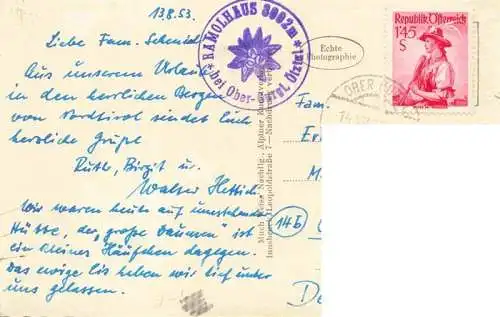 13.8.53.
Liebe Fam. Schmid
Aus unserem Urlaub
in den herrlichen Bergen
von Nordtirol sendet Euch
herzliche Grüße
Ruth, Birgit u.
Walter Hettich
Wir waren heute auf umstehender
Hütte, der „große Daumen" ist
ein kleines Häufchen dagegen.
Das ewige Eis haben wir tief unter
uns gelassen.
RAMOLHAUS 3002m
bei Ober- Ötztal
Echte
Photographie
Republik Österreich
1'45
S
OBER
14
Fam.
14b
Much Heiss Nachflg., Alpiner
Innsbruck, Leopoldstraße 7 —